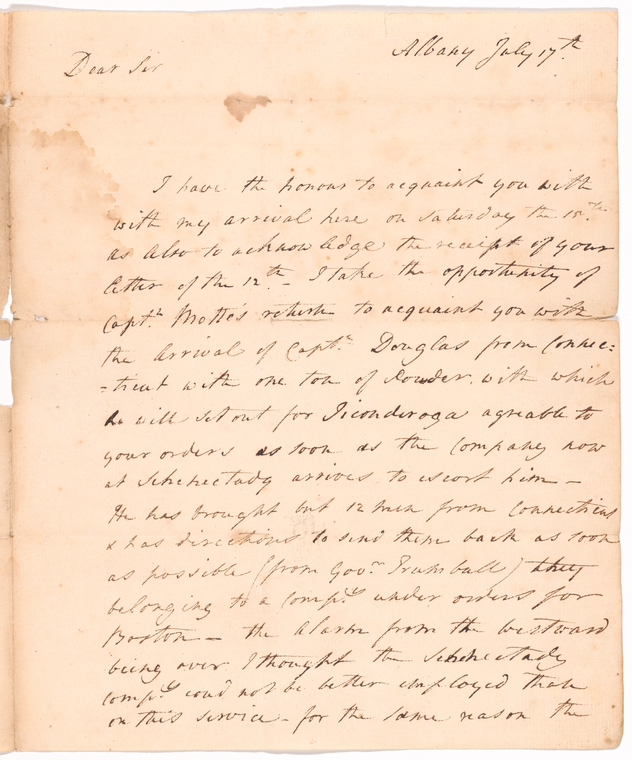 Albany July 17th
Dear Sir
I have the honour to acquaint you with
with my arrival here on Saturday the 15th
as also to acknowledge the receipt of your
letter of the 12th - I take the opportunity of
Captn Motte's return to acquaint you with
the arrival of Captn Douglas from Connec:
-ticut with one ton of Powder, with which
he will set out for Ticonderoga agreable to
your orders as soon as the company now
at Schenectady arrives to escort him -
He has brought but 12 men from Connecticut
& has directions to send them back as soon
as possible (from Govr Trumball) they
belonging to a compy under orders for
Boston - the Alarm from the westward
being over I thought the Schenectady
compy coud not be better employed than
on this service - for the same reason the